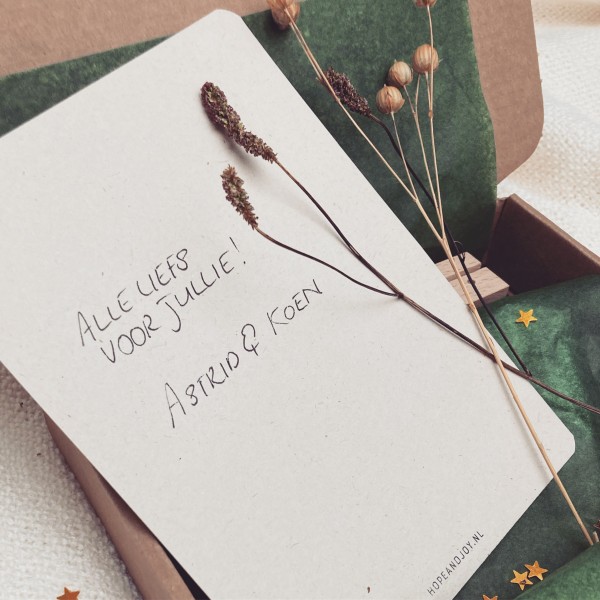 ALLE LIEFS
VOOR JULLIE!
ASTRID & KOEN
HOPEANDJOY.NL